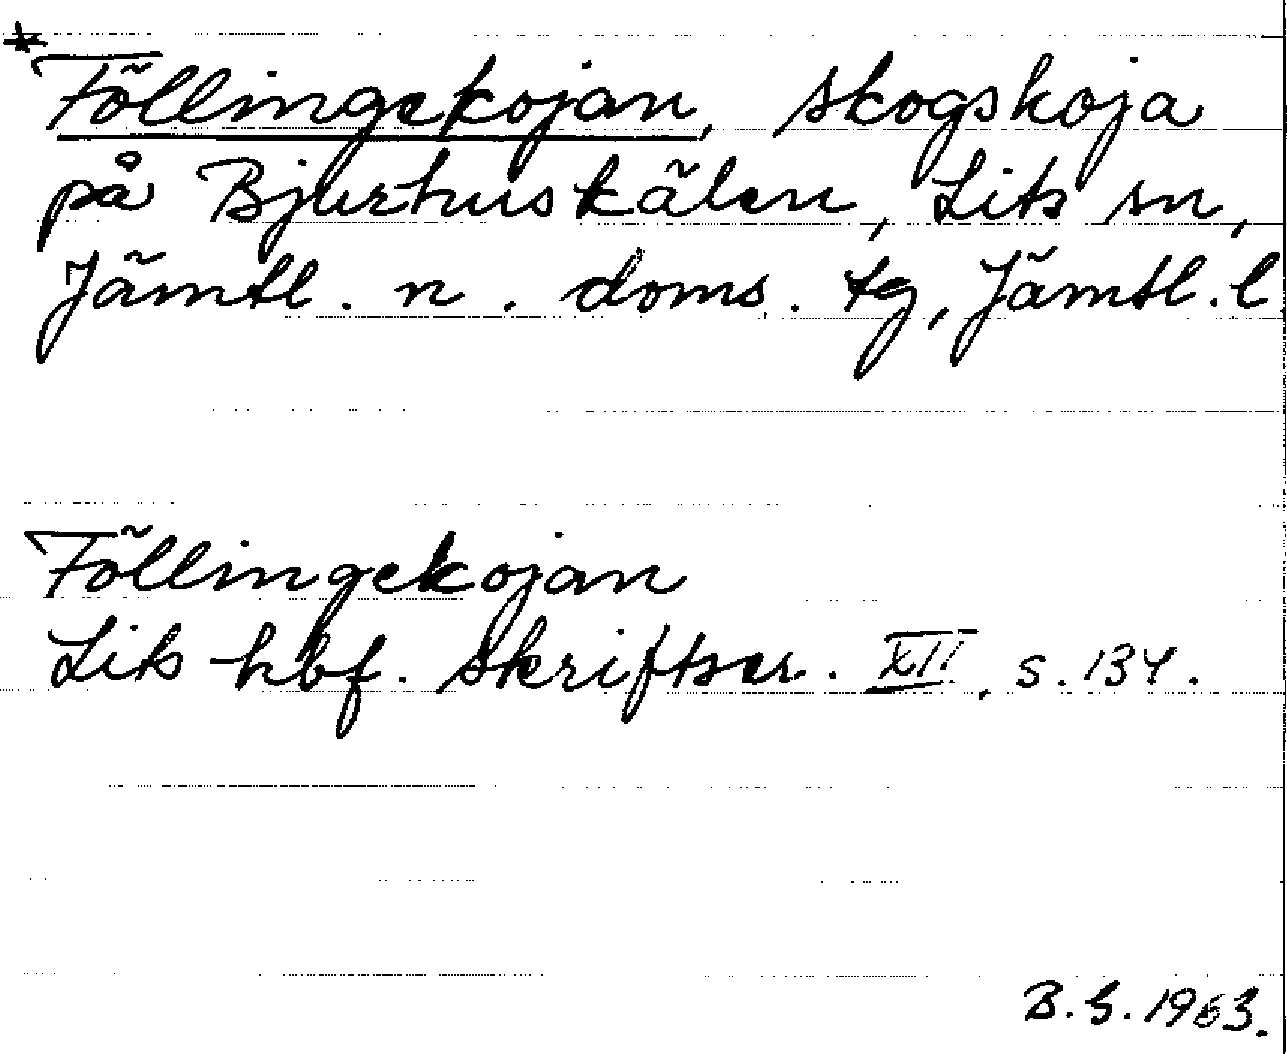 * Föllingekojan, skogskoja
på Bjurhuskälen, Lits sn,
Jämtl. n. doms. tg, Jämtl. l
Föllingekojan
Lits hbf. skriftser. XII, s. 134.
B. G. 1963.